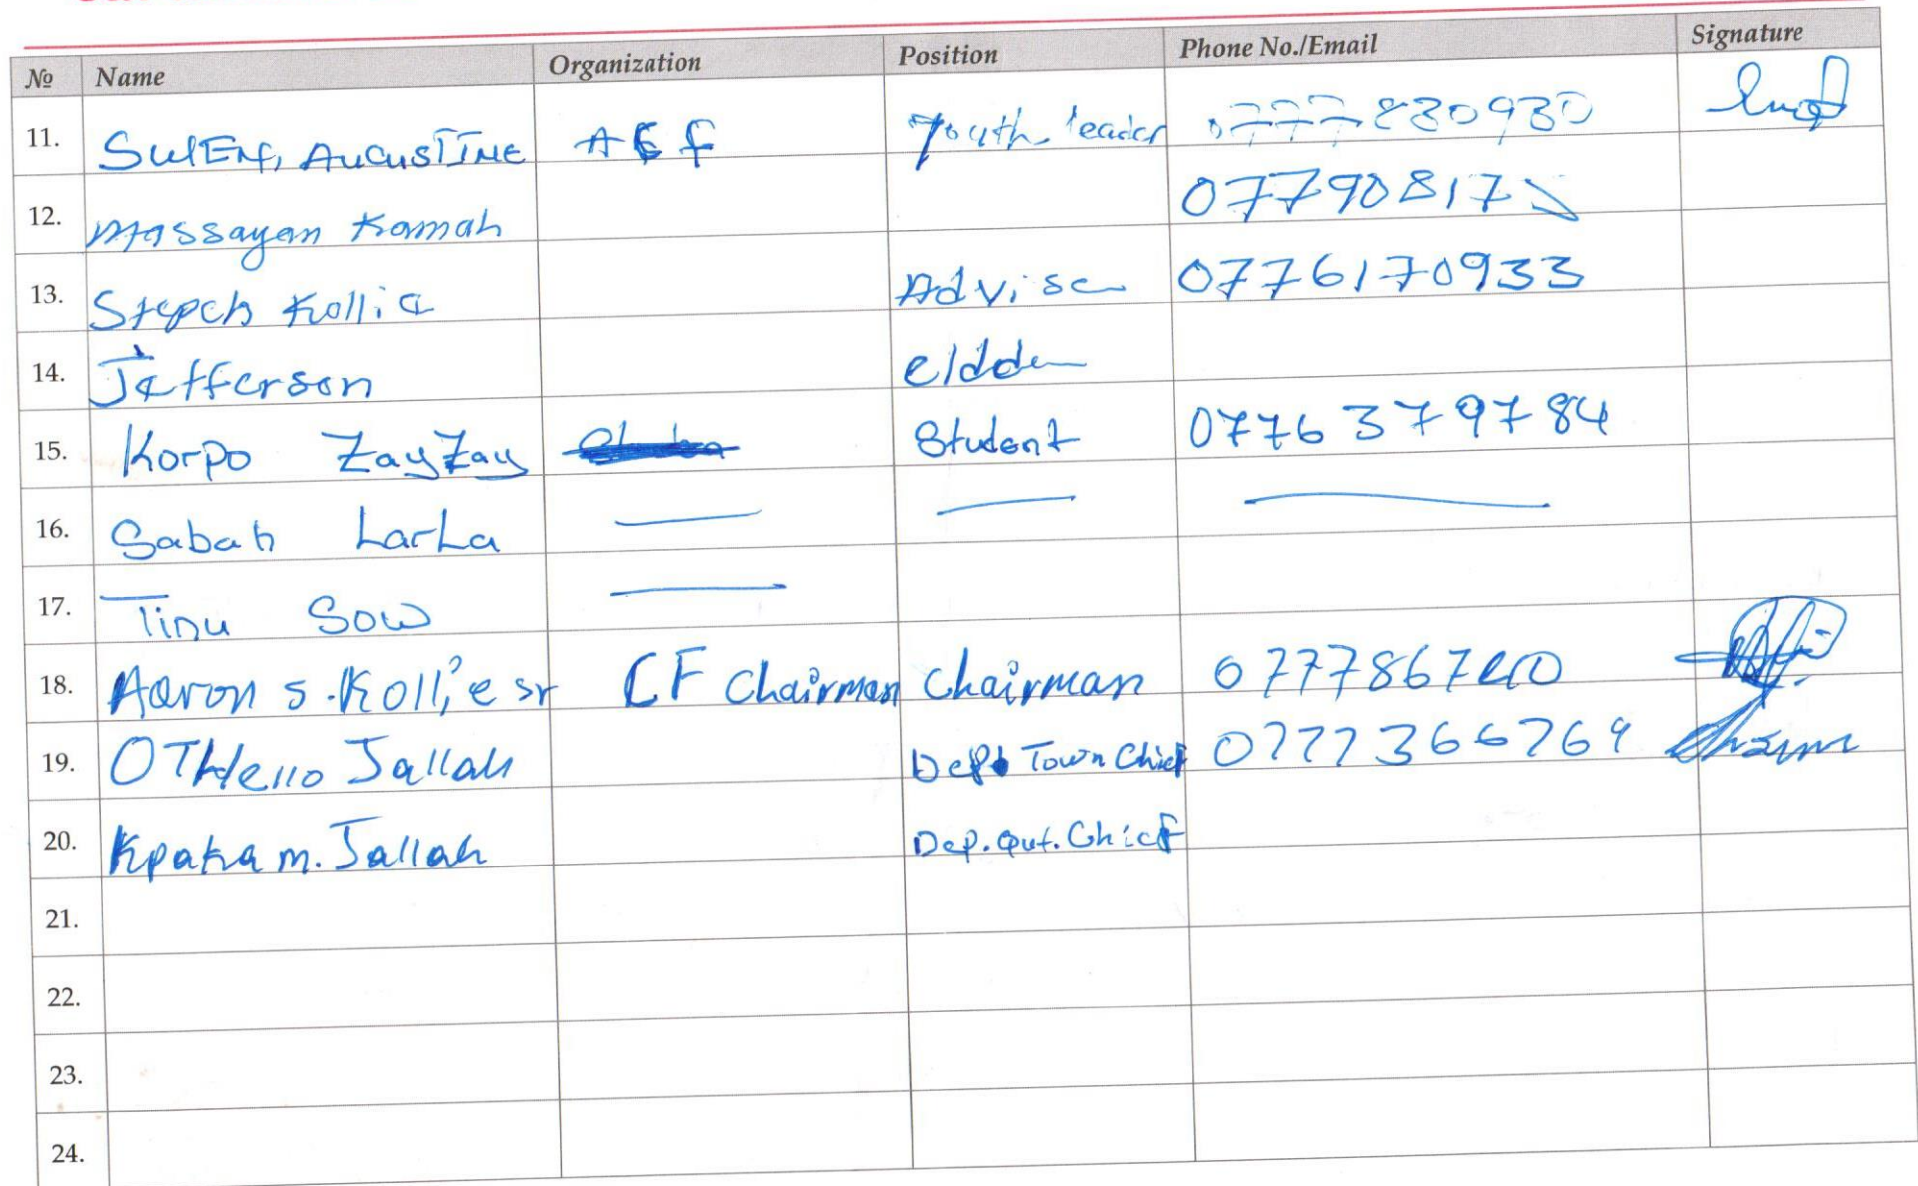 № Name Organization Position Phone No./Email Signature
11. AUGUSTINE Youth leader 0777830930
12. Massayan Kamah
13. Kollie Advise 0776170933
14. Jefferson eldder
15. Korpo ZayZay Student 0776379784
16. Sabah LarLa
17. Tinu Sow
18. Aaron S. Kollie sr CF Chairman Chairman
19. OTHello Jallah Dept Town Chief 0777366769
20. Kpaka m. Jallah Dep. Qut. Chief
21.
22.
23.
24.